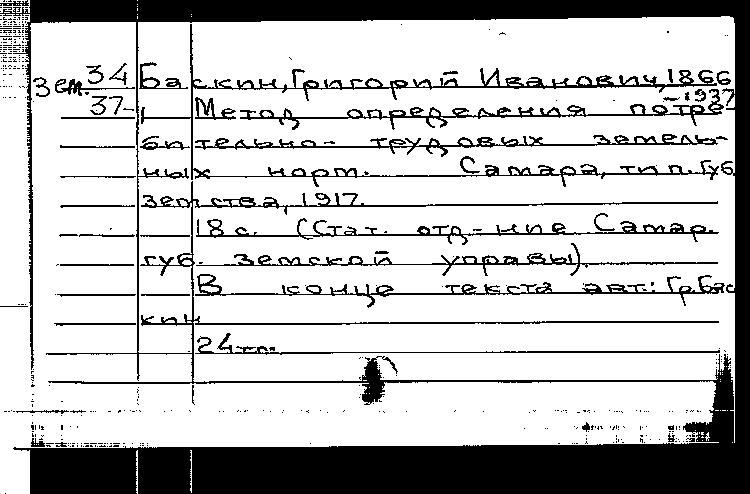 Зем. 34 Баскин, Григорий Иванович, 1866
37- -1937
Метод определения потре-
бительно-трудовых земель-
ных норм. Самара, тип. Губ.
земства, 1917.
18 с. (Стат. отд-ние Самар.
губ. земской управы).
В конце текста авт.: Гр. Бас
кин
24